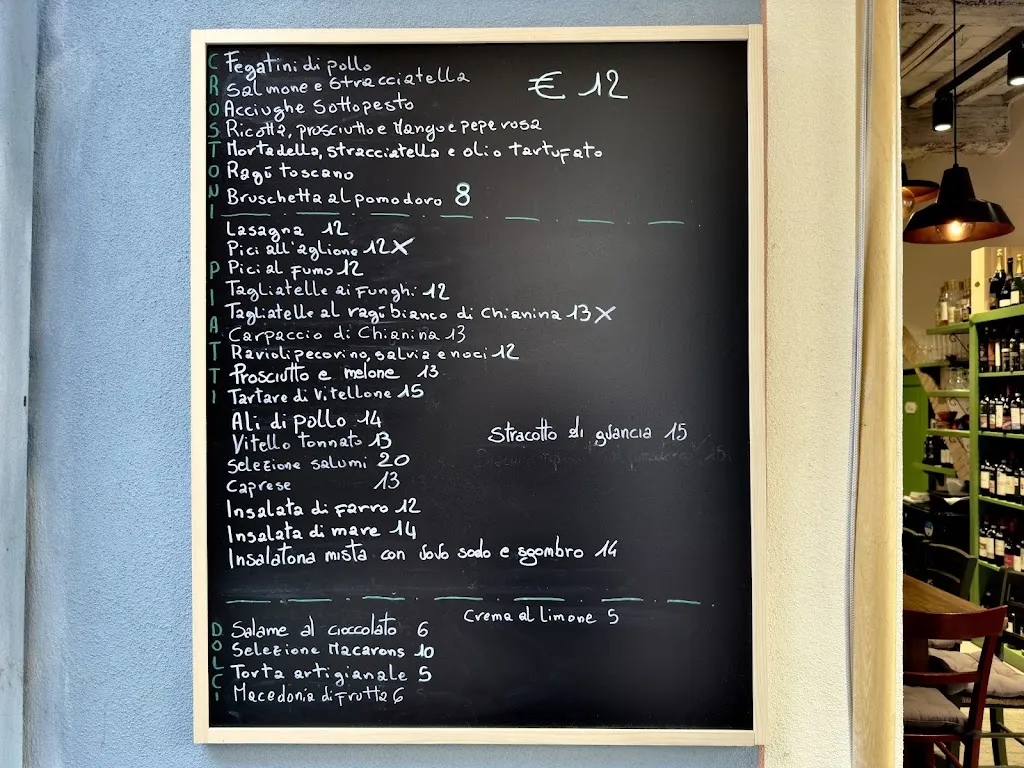 CROSTONI
Fegatini di pollo
Salmone e Stracciatella
€ 12
Acciughe Sottopesto
Ricotta, prosciutto e Mango e pepe rosa
Mortadella, stracciatella e olio tartufato
Ragù toscano
Bruschetta al pomodoro 8
PIATTI
Lasagna 12
Pici all'aglione 12 X
Pici al fumo 12
Tagliatelle ai Funghi 12
Tagliatelle al ragù bianco di Chianina 13 X
Carpaccio di Chianina 13
Ravioli pecorino, salvia e noci 12
Prosciutto e melone 13
Tartare di Vitellone 15
Ali di pollo 14
Vitello tonnato 13
Stracotto di guancia 15
Selezione salumi 20
Caprese 13
Insalata di farro 12
Insalata di mare 14
Insalatona mista con uovo sodo e sgombro 14
DOLCI
Crema al limone 5
Salame al cioccolato 6
Selezione Macarons 10
Torta artigianale 5
Macedonia di frutta 6